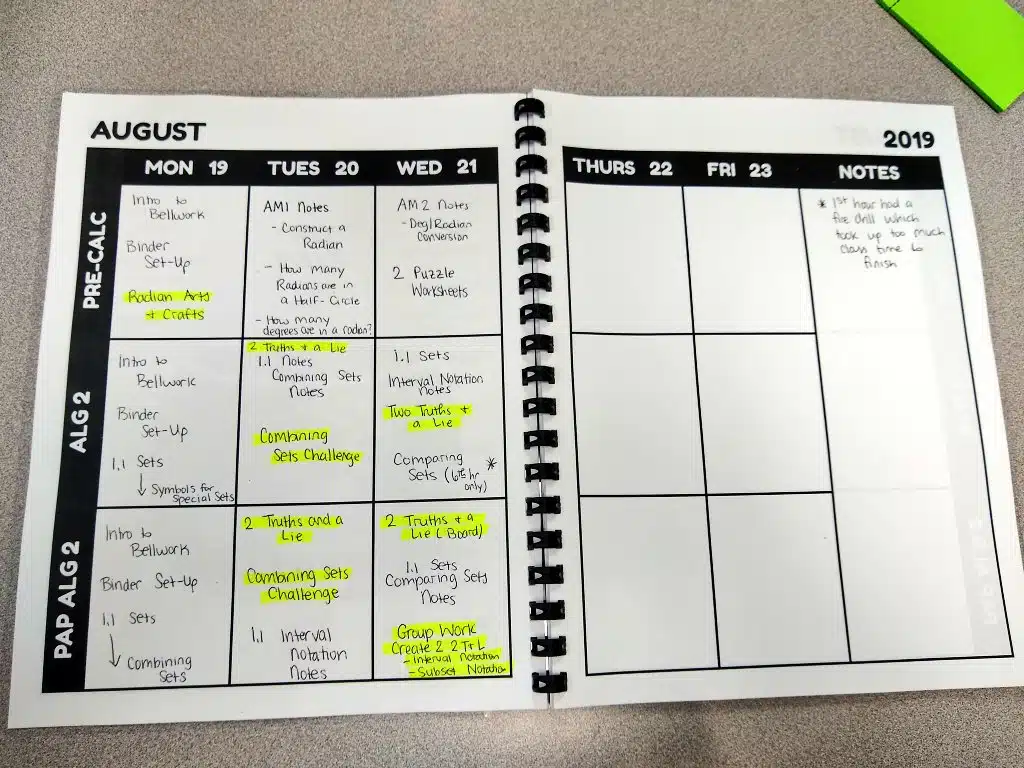 AUGUST
2019
MON 19
TUES 20
WED 21
THURS 22
FRI 23
NOTES
PRE-CALC
Intro to
Bellwork
Binder
Set-Up
Radian Arts
+ Crafts
AM1 Notes
- Construct a
Radian
- How many
Radians are in
a Half-Circle
- How many
degrees are in a radian?
AM2 Notes
- Deg/Radian
Conversion
2 Puzzle
Worksheets
* 1st hour had a
fire drill which
took up too much
class time to
finish
ALG 2
Intro to
Bellwork
Binder
Set-Up
1.1 Sets
↓ Symbols for
Special Sets
2 Truths + a Lie
1.1 Notes
Combining Sets
Notes
Combining
Sets Challenge
1.1 Sets
Interval Notation
Notes
Two Truths +
a Lie
Comparing *
Sets (6th hr
only)
PAP ALG 2
Intro to
Bellwork
Binder Set-Up
1.1 Sets
↓ Combining
Sets
2 Truths and a
Lie
Combining Sets
Challenge
1.1 Interval
notation
Notes
2 Truths + a
Lie (Board)
1.1 Sets
Comparing Sets
Notes
Group Work
Create 2 2T+L
- Interval Notation
- Subset Notation